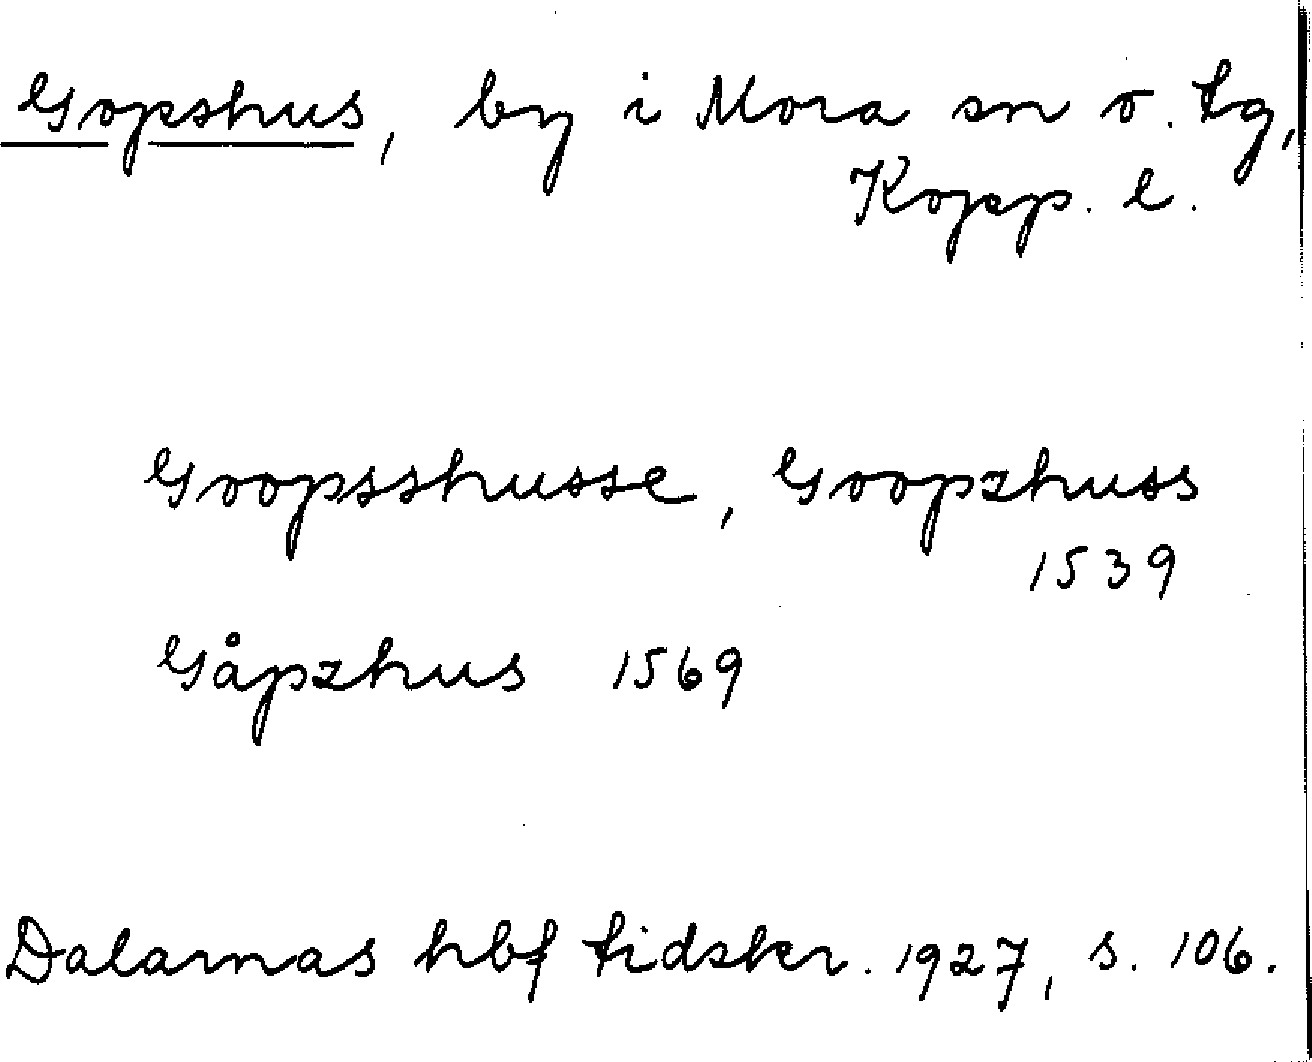 Gopshus, by i Mora sn o. tg,
Kopp. l.
Goopsshusse, Goopzhuss
1539
Gåpzhus 1569
Dalarnas hbf tidskr. 1927, s. 106.